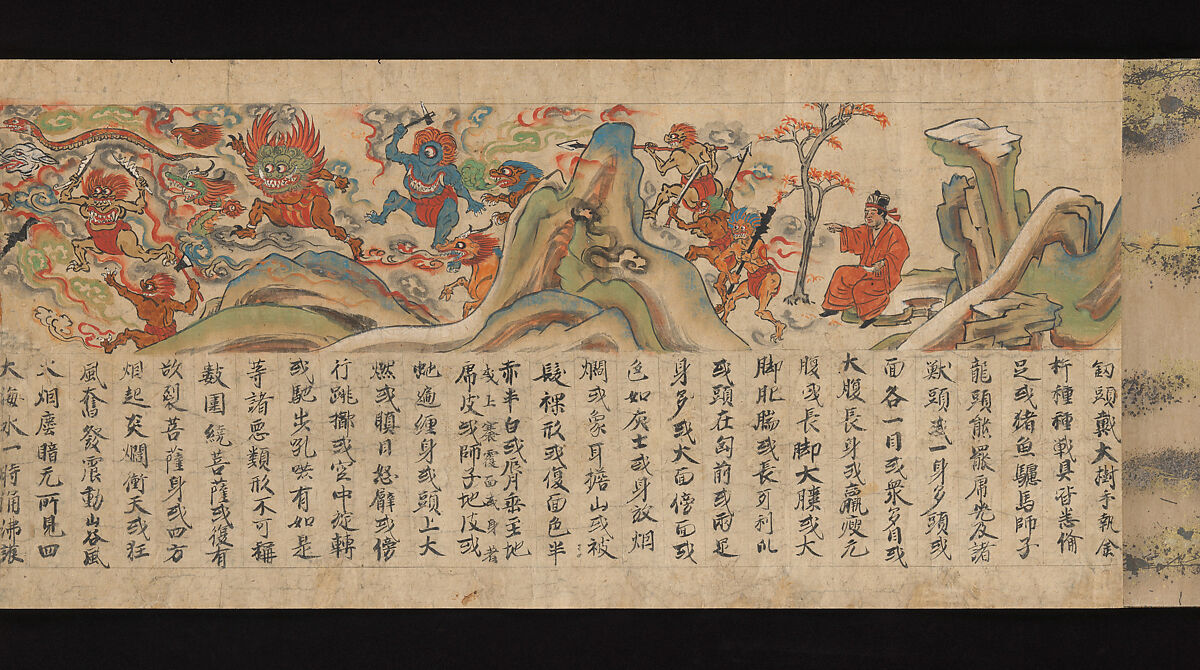 釰頭戴大樹手執金
杵種種戰具皆悉俻
足或猪魚驢馬師子
龍頭熊羆虎兕及諸
獸頭或一身多頭或
面各一目或衆多目或
大腹長身或羸瘦无
腹或長脚大膝或大
脚肥腨或長牙利爪
或頭在匈前或兩足
身多或大面傍面或
色如灰土或身放烟
爓或象耳擔山或被
髮裸形或復面色半
赤半白或脣垂至地
或上褰覆面或身著
虎皮或師子虵皮或
虵遍纏身或頭上火
燃或瞋目怒臂或傍
行跳擲或空中旋轉
或馳走吼喚有如是
等諸惡類形不可稱
數圍繞菩薩或復有
欲裂菩薩身或四方
烟起炎爓衝天或狂
風奮發震動山谷風
火烟塵暗无所見四
大海水一時涌沸護